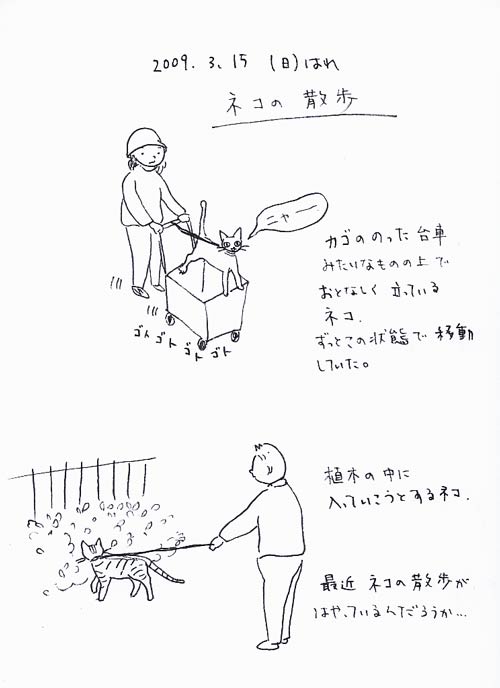 2009. 3. 15 (日) はれ
ネコの 散歩
ニャー
カゴの のった 台車
みたいなものの上で
おとなしく 立っている
ネコ.
ずっとこの状態で 移動
していた。
ゴト ゴト ゴト ゴト
植木の中に
入っていこうとするネコ.
最近 ネコの散歩が
はやっているんだろうか…